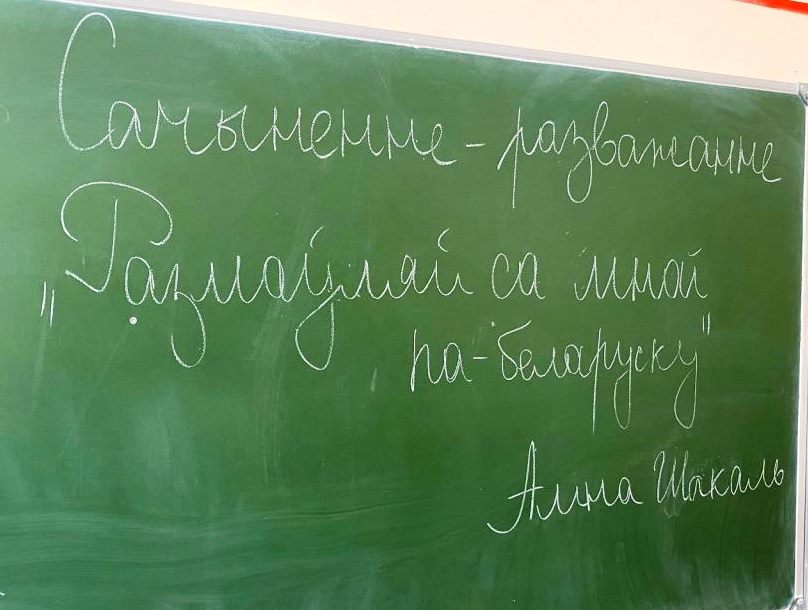 Сачыненне - разважанне
"Размаўляй са мной
па-беларуску"
Аліна Шакаль